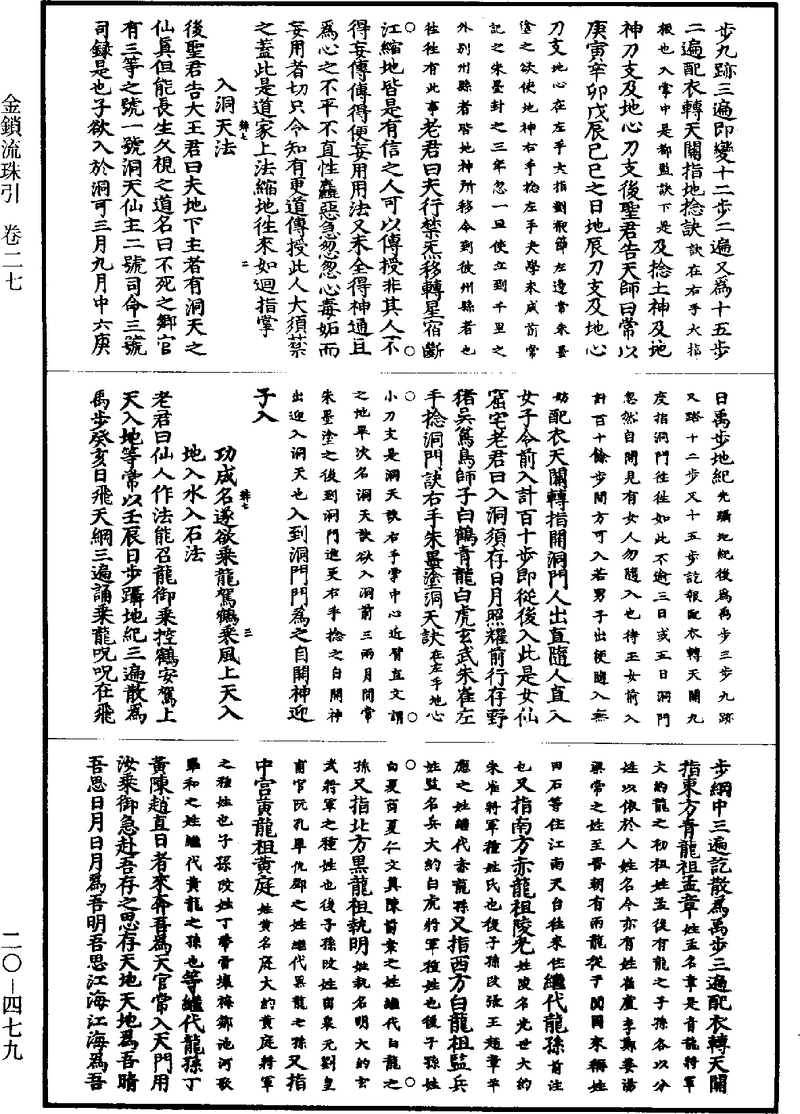 金鎖流珠引　卷二七
二〇－四七九
步九跡三遍即變十二步二遍又為十五步
二遍配衣轉天關指地捻訣訣在右手大指
根也入掌中是都監訣下是及捻土神及地
神刀支及地心刀支後聖君告天師曰常以
庚寅辛卯戊辰己巳之日地辰刀支及地心
刀支地心在左手大指第根節左邊常朱墨
塗之欲使地神右手捻左手夫學未成前常
記之朱墨封之三年忽一旦使立到千里之
外別州縣者皆地神所移令到彼州縣者也
往往有此事老君曰夫行禁炁移轉星宿斷
江縮地皆是有信之人可以傳授非其人不
得妄傳傳得便妄用用法又未全得神通且
為心之不平不直性麤惡急忽忽心毒妬而
妄用者切只令知有更道傳授此人大須禁
之蓋此是道家上法縮地往來如迴指掌
入洞天法
後聖君告大王君曰夫地下主者有洞天之
仙真但能長生久視之道名曰不死之鄉官
有三等之號一號洞天仙主二號司命三號
司錄是也子欲入於洞可三月九月中六庚
日禹步地紀先躡地紀後為禹步三步九跡
又踏十二步又十五步訖報配衣轉天關九
度指洞門往往如此不逾三日或五日洞門
忽然自開見有女人勿隨入也待玉女前入
計百十餘步間方可入若男子出便隨入無
妨配衣天關轉指開洞門人出直隨人直入
女子令前入計百十步即從後入此是女仙
窟宅老君曰入洞須存日月照耀前行存野
猪吳篤鳥師子白鶴青龍白虎玄武朱雀左
手捻洞門訣右手朱墨塗洞天訣在左手地心
小刀支是洞天訣右手掌中心近臂直文謂
之地畢次名洞天訣欲入洞前三兩月間常
朱墨塗之後到洞門進更右手捻之自開神
出迎入洞天也入到洞門門為之自開神迎
子入
功成名遂欲乘龍駕鶴乘風上天入
地入水入石法
老君曰仙人作法能召龍御乘控鶴安駕上
天入地等常以壬辰日步躡地紀三遍散為
禹步癸亥日飛天綱三遍誦乘龍呪呪在飛
步綱中三遍訖散為禹步三遍配衣轉天關
指東方青龍祖孟章姓孟名章是青龍將軍
大約龍之初祖姓孟後有龍之子孫各以分
姓以依於人姓名今亦有姓崔盧李鄭姜湯
梁常之姓至晉朝有兩龍從于闐國來稱姓
田石等住江南天台往來住繼代龍孫前注
也又指南方赤龍祖陵光姓陵名光世大約
朱雀將軍種姓氏也後子孫改張王趙章平
應之姓繼代赤龍孫又指西方白龍祖監兵
姓監名兵大約白虎將軍種姓也後子孫姓
白夏荀夏仁文莫陳前妻之姓繼代白龍之
孫又指北方黑龍祖執明姓執名明大約玄
武將軍之種姓也後子孫改姓田泉元劉皇
甫官阮孔畢仇鄧之姓繼代黑龍之孫又指
中宮黃龍祖黃庭姓黃名庭大約黃庭將軍
之種姓也子孫改姓丁帶雷雍梅鄒池河敬
畢和之姓繼代黃龍之孫也等繼代龍孫丁
黃陳趙直日者來奔吾為天官常入天門用
汝乘御急赴吾存之思存天地天地為吾晴
吾思日月日月為吾明吾思江海江海為吾